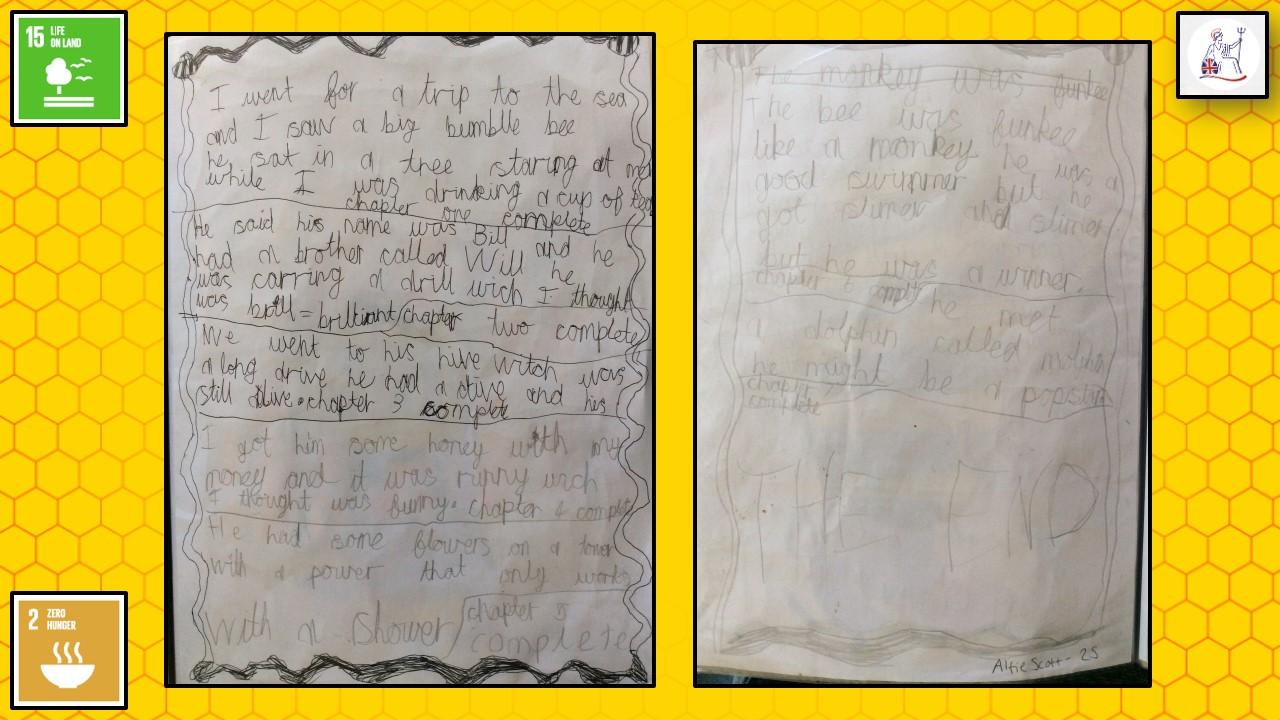 15 LIFE
ON LAND
I went for a trip to the sea
and I saw a big bumblle bee
he sat in a tree staring at me
while I was drinking a cup of tea
chapter one complete
He said his name was Bill
had a brother called Will and he
was carring a drill wich I thought he
was brill = brilliant/chapter two complete
We went to his hive witch was
a long drive he had a dive and his
still alive. chapter 3 complete
I got him some honey with my
money and it was runny wich
I thought was funny. chapter 4 complete
He had some flowers on a tower
with a power that only works
with a shower/chapter 5
complete
2 ZERO
HUNGER
the monkey was funkee
The bee was funkee
like a monkey he was a
good swimmer but he
got slimer and slimer
but he was a winner.
chapter 6 complete he met
a dolphin called
he might be a popstar
chapter
complete
THE END
Alfie Scott - 2S